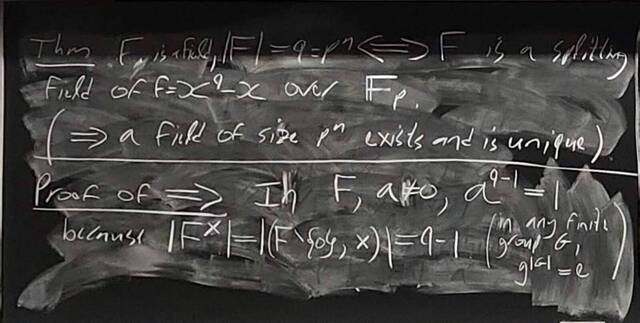 Thm F is a field, |F| = q = pⁿ ⟺ F is a splitting
field of f = x^q - x over 𝔽p.
(⟹ a field of size pⁿ exists and is unique)
Proof of ⟹ In F, a≠0, a^{q-1} = 1
because |F^×| = |(F\{0}, ×)| = q-1 (in any finite
group G,
g^{|G|} = e